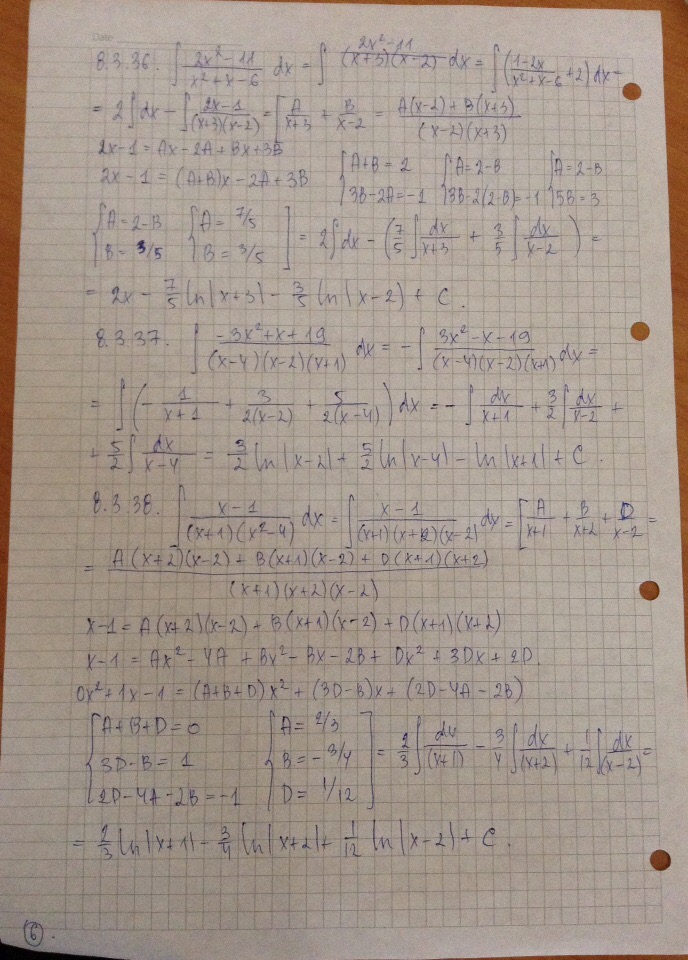 Date
8.3.36. ∫ (2x²-11)/(x²+x-6) dx = ∫ (2x²-11)/((x+3)(x-2)) dx = ∫ ((1-2x)/(x²+x-6) + 2) dx =
= 2∫dx - ∫ (2x-1)/((x+3)(x-2)) = [ A/(x+3) + B/(x-2) = (A(x-2)+B(x+3))/((x-2)(x+3))
2x-1 = Ax-2A+Bx+3B
2x-1 = (A+B)x-2A+3B { A+B=2 3B-2A=-1 { A=2-B 3B-2(2-B)=-1 { A=2-B 5B=3
{ A=2-B B=3/5 { A=7/5 B=3/5 ] = 2∫dx - (7/5 ∫ dx/(x+3) + 3/5 ∫ dx/(x-2)) =
= 2x - 7/5 ln|x+3| - 3/5 ln|x-2| + C.
8.3.37. ∫ (-3x²+x+19)/((x-4)(x-2)(x+1)) dx = -∫ (3x²-x-19)/((x-4)(x-2)(x+1)) dx =
= ∫ (-1/(x+1) + 3/(2(x-2)) + 5/(2(x-4))) dx = -∫ dx/(x+1) + 3/2 ∫ dx/(x-2) +
+ 5/2 ∫ dx/(x-4) = 3/2 ln|x-2| + 5/2 ln|x-4| - ln|x+1| + C.
8.3.38. ∫ (x-1)/((x+1)(x²-4)) dx = ∫ (x-1)/((x+1)(x+2)(x-2)) dx = [ A/(x+1) + B/(x+2) + D/(x-2) =
= (A(x+2)(x-2) + B(x+1)(x-2) + D(x+1)(x+2))/((x+1)(x+2)(x-2))
x-1 = A(x+2)(x-2) + B(x+1)(x-2) + D(x+1)(x+2)
x-1 = Ax²-4A + Bx²-Bx-2B + Dx²+3Dx+2D
0x²+1x-1 = (A+B+D)x² + (3D-B)x + (2D-4A-2B)
{ A+B+D=0 3D-B=1 2D-4A-2B=-1 { A=2/3 B=-3/4 D=1/12 ] = 2/3 ∫ dx/(x+1) - 3/4 ∫ dx/(x+2) + 1/12 ∫ dx/(x-2) =
= 2/3 ln|x+1| - 3/4 ln|x+2| + 1/12 ln|x-2| + C.
6.